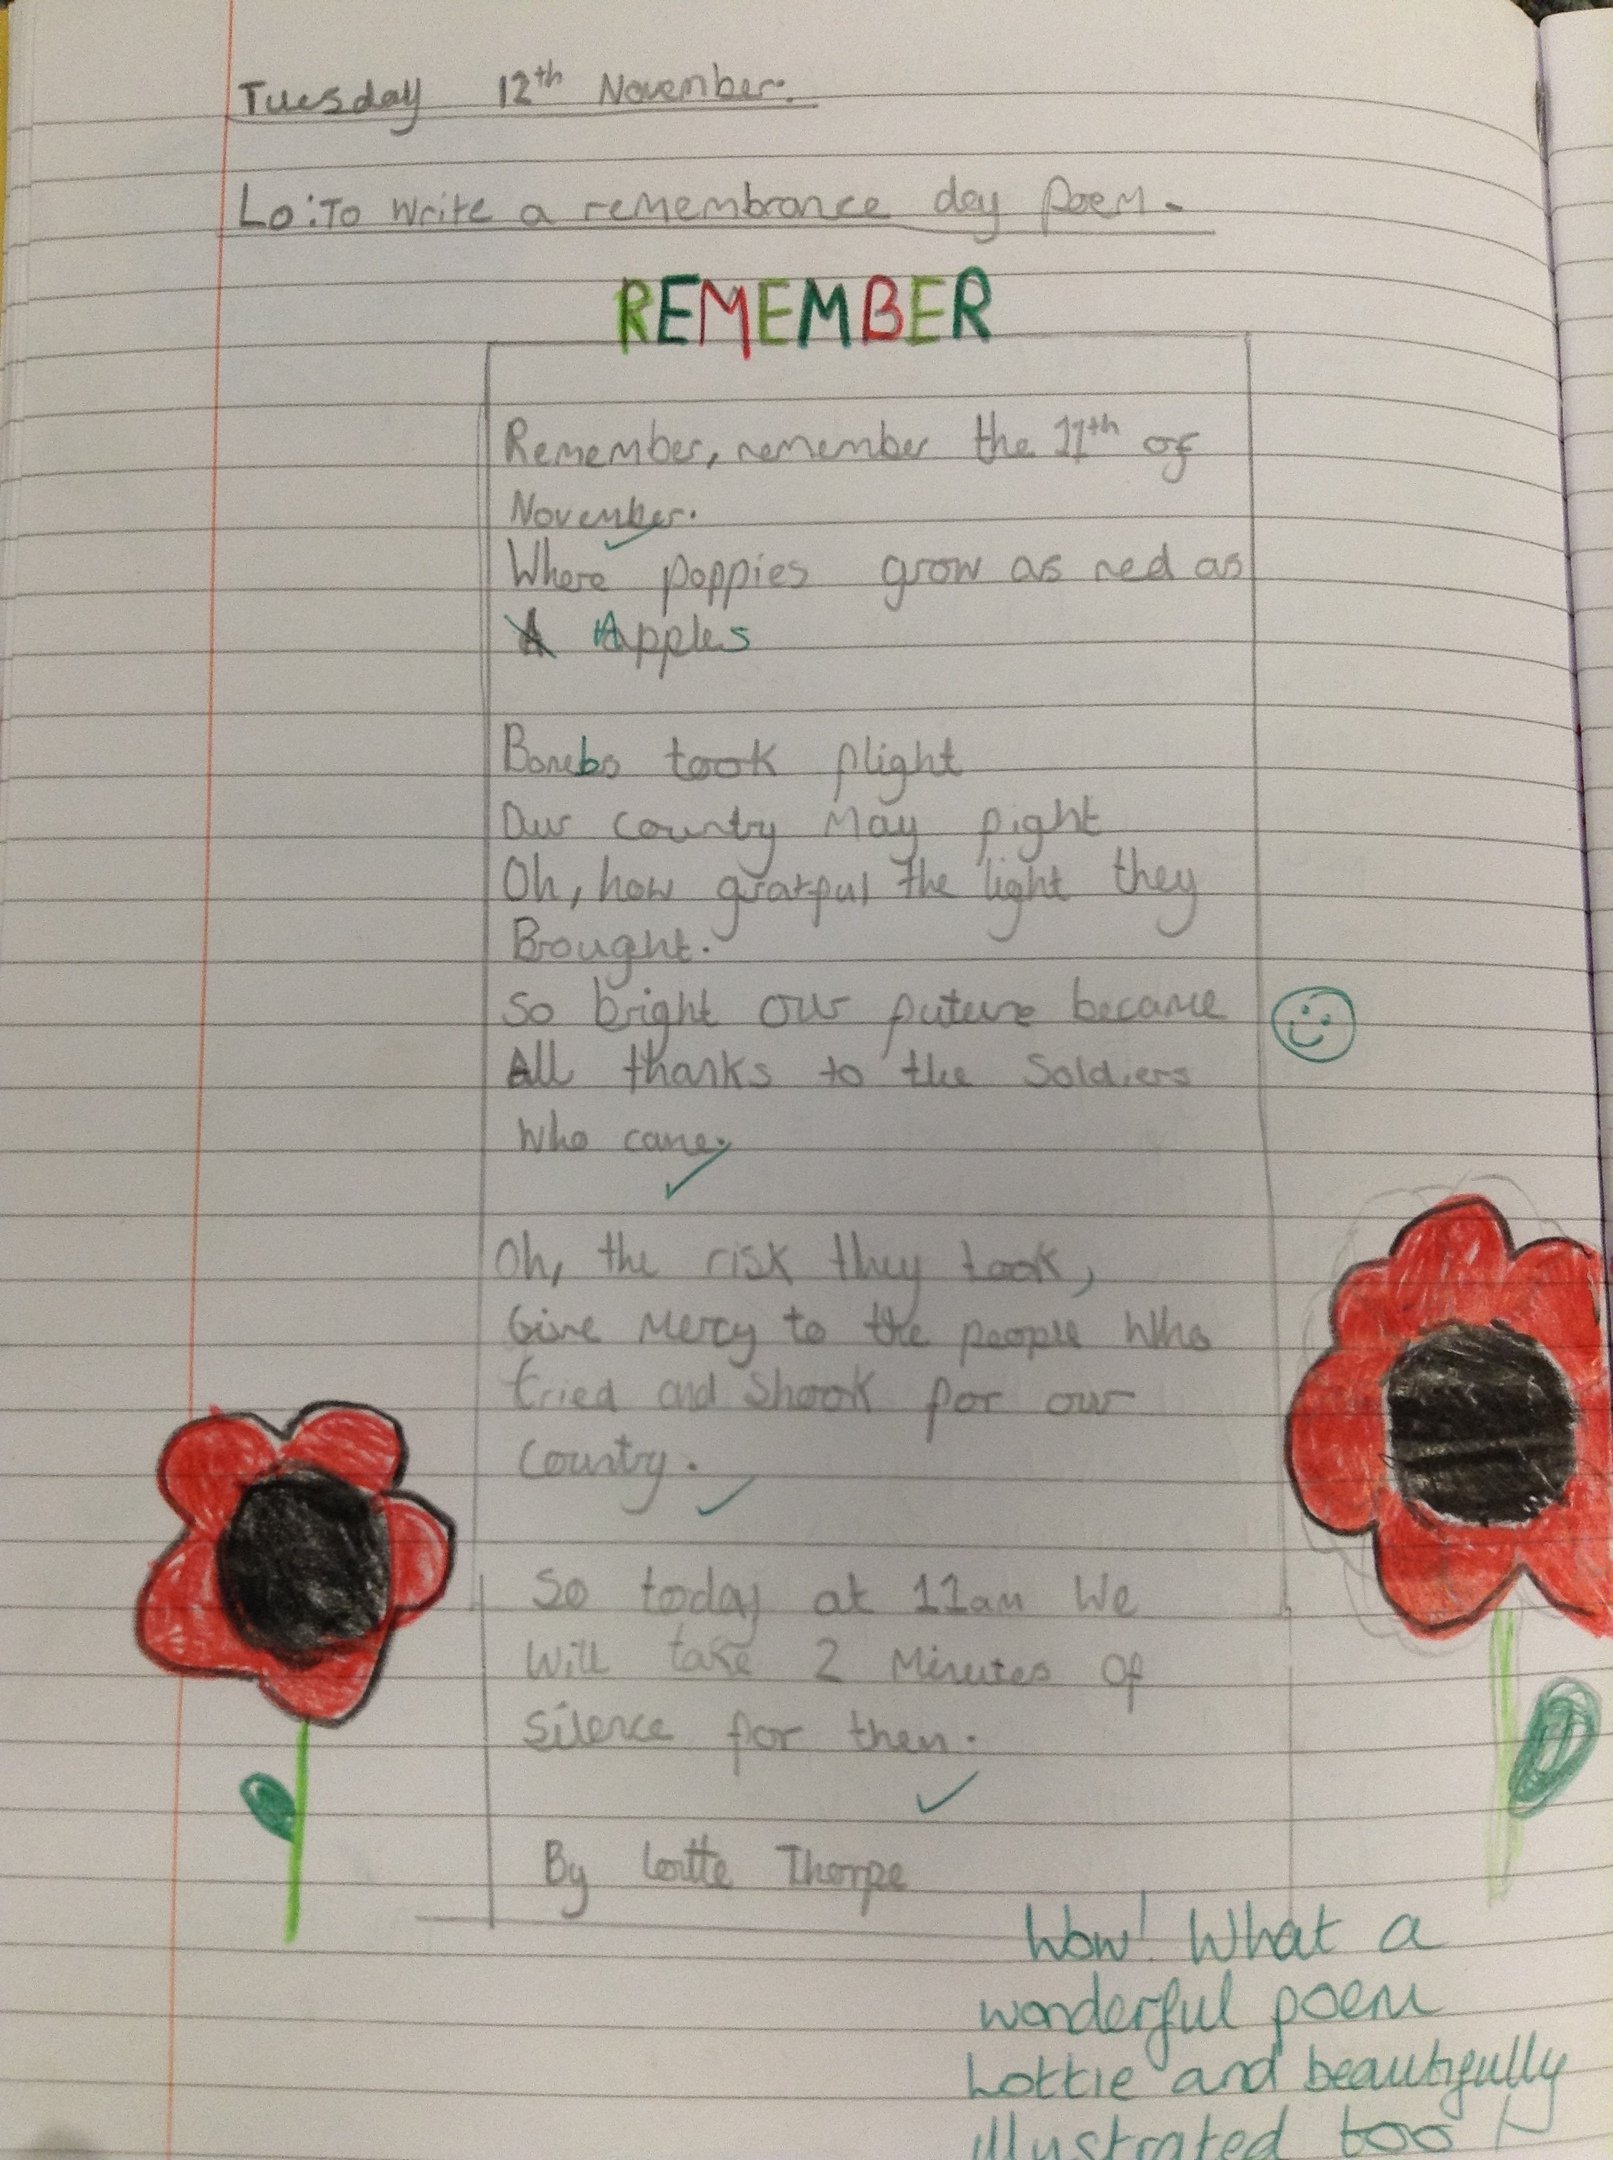 Tuesday 12th November.
Lo: To write a remembrance day poem.
REMEMBER
Remember, remember the 11th of
November.
Where poppies grow as red as
Apples
Bombs took flight
Our country may fight
Oh, how gratful the light they
Brought.
So bright our future became
All thanks to the Soldiers
Who came.
Oh, the risk they took,
Give Mercy to the people Who
tried and Shook for our
Country.
So today at 11am We
Will take 2 Minutes of
Silence for them.
By Lottie Thorpe
Wow! What a
wonderful poem
Lottie and beautifully
illustrated too!